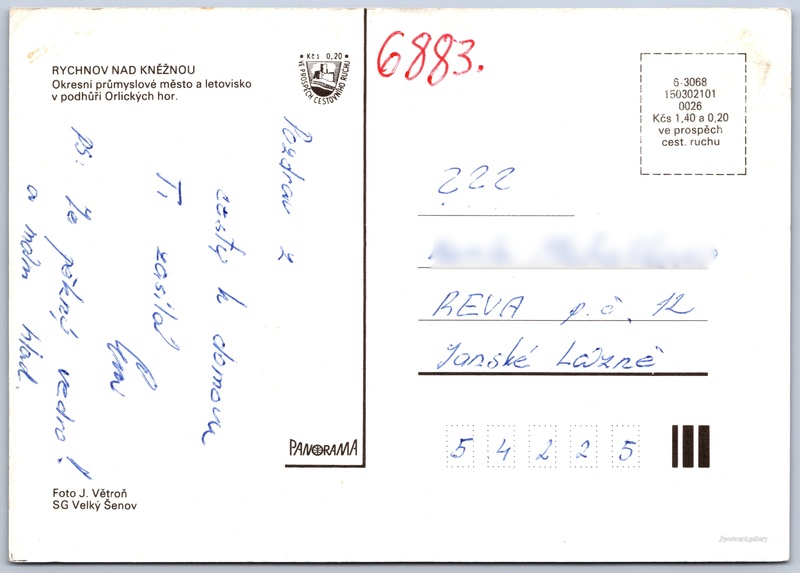 RYCHNOV NAD KNĚŽNOU
Okresní průmyslové město a letovisko
v podhůří Orlických hor.
• Kčs 0,20 •
VE PROSPĚCH CESTOVNÍHO RUCHU
6883.
6-3068
150302101
0026
Kčs 1,40 a 0,20
ve prospěch
cest. ruchu
Pozdrav z
cesty k domovu
Ti zasílá
PS: Je pěkný vedro!
a mám hlad.
222
REVA p.č. 12
Janské Lázně
54225
PANORAMA
Foto J. Větroň
SG Velký Šenov
//postcard.gallery